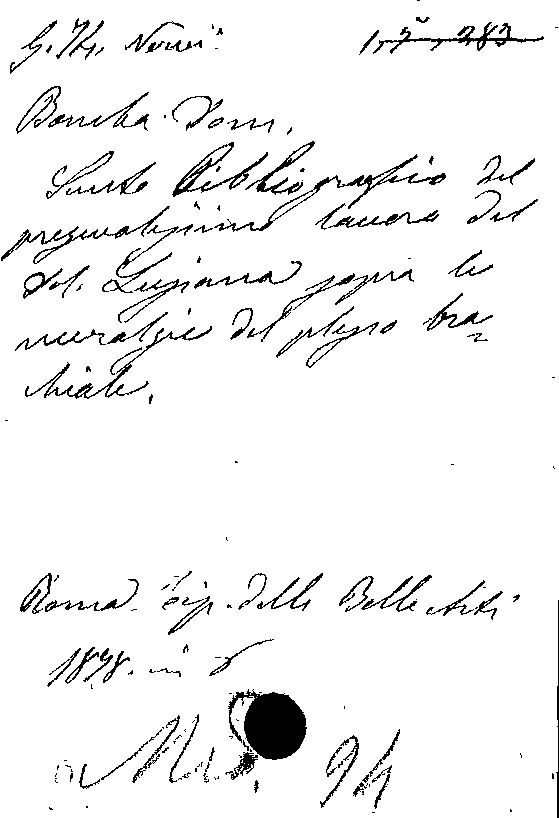 1,7, 283
Bomba Dom.
Sunto Bibliografico del
pregevolissimo lavoro del
dot. Lussana sopra le
nevralgie del plesso bra=
chiale.
Roma. Tip. delle Belle Arti
1878. in 8
Mis. 94